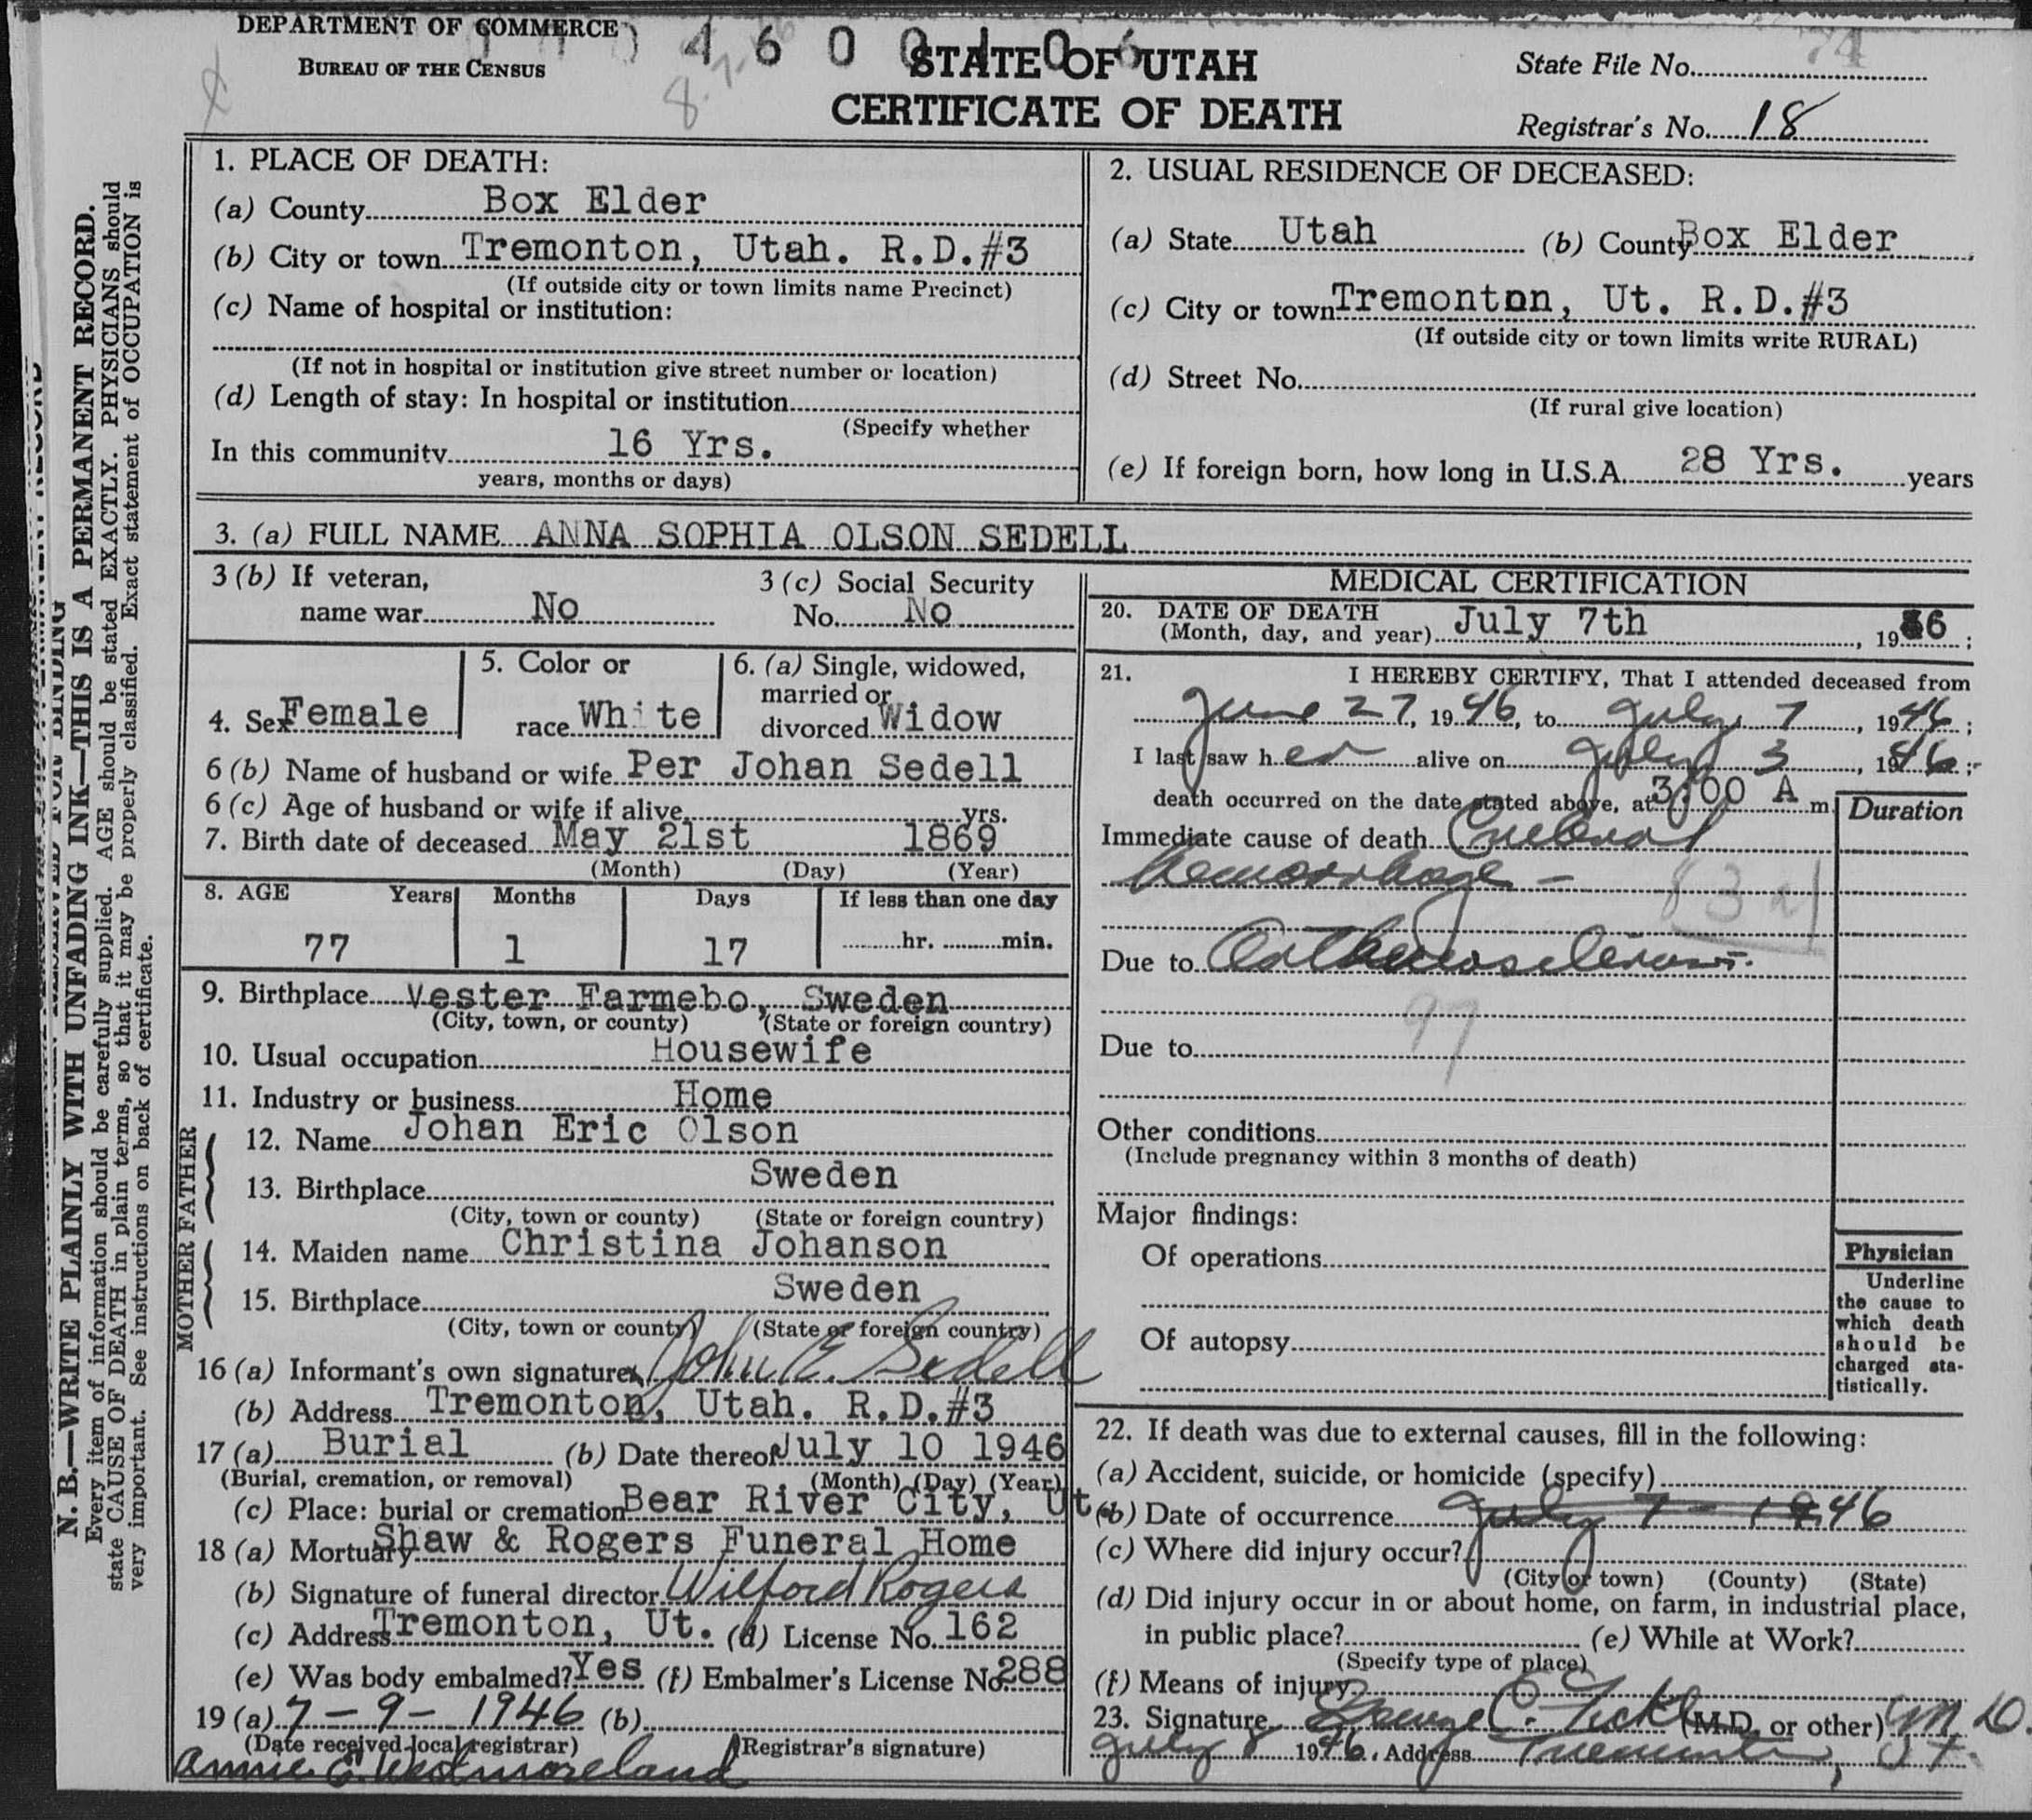 DEPARTMENT OF COMMERCE
BUREAU OF THE CENSUS
4 6 0 0 1 0 6
STATE OF UTAH
CERTIFICATE OF DEATH
State File No. 74
Registrar's No. 18
N. B.—WRITE PLAINLY WITH UNFADING INK—THIS IS A PERMANENT RECORD.
Every item of information should be carefully supplied. AGE should be stated EXACTLY. PHYSICIANS should
state CAUSE OF DEATH in plain terms, so that it may be properly classified. Exact statement of OCCUPATION is
very important. See instructions on back of certificate.
1. PLACE OF DEATH:
(a) County Box Elder
(b) City or town Tremonton, Utah. R.D.#3
(If outside city or town limits name Precinct)
(c) Name of hospital or institution:
(If not in hospital or institution give street number or location)
(d) Length of stay: In hospital or institution
(Specify whether
In this community 16 Yrs.
years, months or days)
2. USUAL RESIDENCE OF DECEASED:
(a) State Utah (b) County Box Elder
(c) City or town Tremonton, Ut. R.D.#3
(If outside city or town limits write RURAL)
(d) Street No.
(If rural give location)
(e) If foreign born, how long in U.S.A. 28 Yrs. years
3. (a) FULL NAME ANNA SOPHIA OLSON SEDELL
3 (b) If veteran,
name war No
3 (c) Social Security
No. No
4. Sex Female
5. Color or
race White
6. (a) Single, widowed,
married or
divorced Widow
6 (b) Name of husband or wife Per Johan Sedell
6 (c) Age of husband or wife if alive yrs.
7. Birth date of deceased May 21st 1869
(Month) (Day) (Year)
8. AGE Years Months Days If less than one day
77 1 17 hr. min.
9. Birthplace Vester Farmebo, Sweden
(City, town, or county) (State or foreign country)
10. Usual occupation Housewife
11. Industry or business Home
FATHER
12. Name Johan Eric Olson
13. Birthplace Sweden
(City, town or county) (State or foreign country)
MOTHER
14. Maiden name Christina Johanson
15. Birthplace Sweden
(City, town or county) (State or foreign country)
16 (a) Informant's own signature John E. Sedell
(b) Address Tremonton, Utah. R.D.#3
17 (a) Burial (b) Date thereof July 10 1946
(Burial, cremation, or removal) (Month) (Day) (Year)
(c) Place: burial or cremation Bear River City, Ut.
18 (a) Mortuary Shaw & Rogers Funeral Home
(b) Signature of funeral director Wilford Rogers
(c) Address Tremonton, Ut. (d) License No. 162
(e) Was body embalmed? Yes (f) Embalmer's License No. 288
19 (a) 7-9-1946 (b)
(Date received local registrar) (Registrar's signature)
Annie E. Westmoreland
MEDICAL CERTIFICATION
20. DATE OF DEATH
(Month, day, and year) July 7th, 1946;
21. I HEREBY CERTIFY, That I attended deceased from
June 27, 1946, to July 7, 1946;
I last saw her alive on July 3, 1946;
death occurred on the date stated above, at 3:00 A m.
Duration
Immediate cause of death Cerebral
hemorrhage -
83 a
Due to Artheriosclerosis.
97
Due to
Other conditions
(Include pregnancy within 3 months of death)
Major findings:
Of operations
Of autopsy
Physician
Underline
the cause to
which death
should be
charged sta-
tistically.
22. If death was due to external causes, fill in the following:
(a) Accident, suicide, or homicide (specify)
(b) Date of occurrence July 7-1946
(c) Where did injury occur?
(City or town) (County) (State)
(d) Did injury occur in or about home, on farm, in industrial place,
in public place? (e) While at Work?
(Specify type of place)
(f) Means of injury
23. Signature George C. Ficklin (M.D. or other) M.D.
July 8 1946. Address Tremonton, Ut.